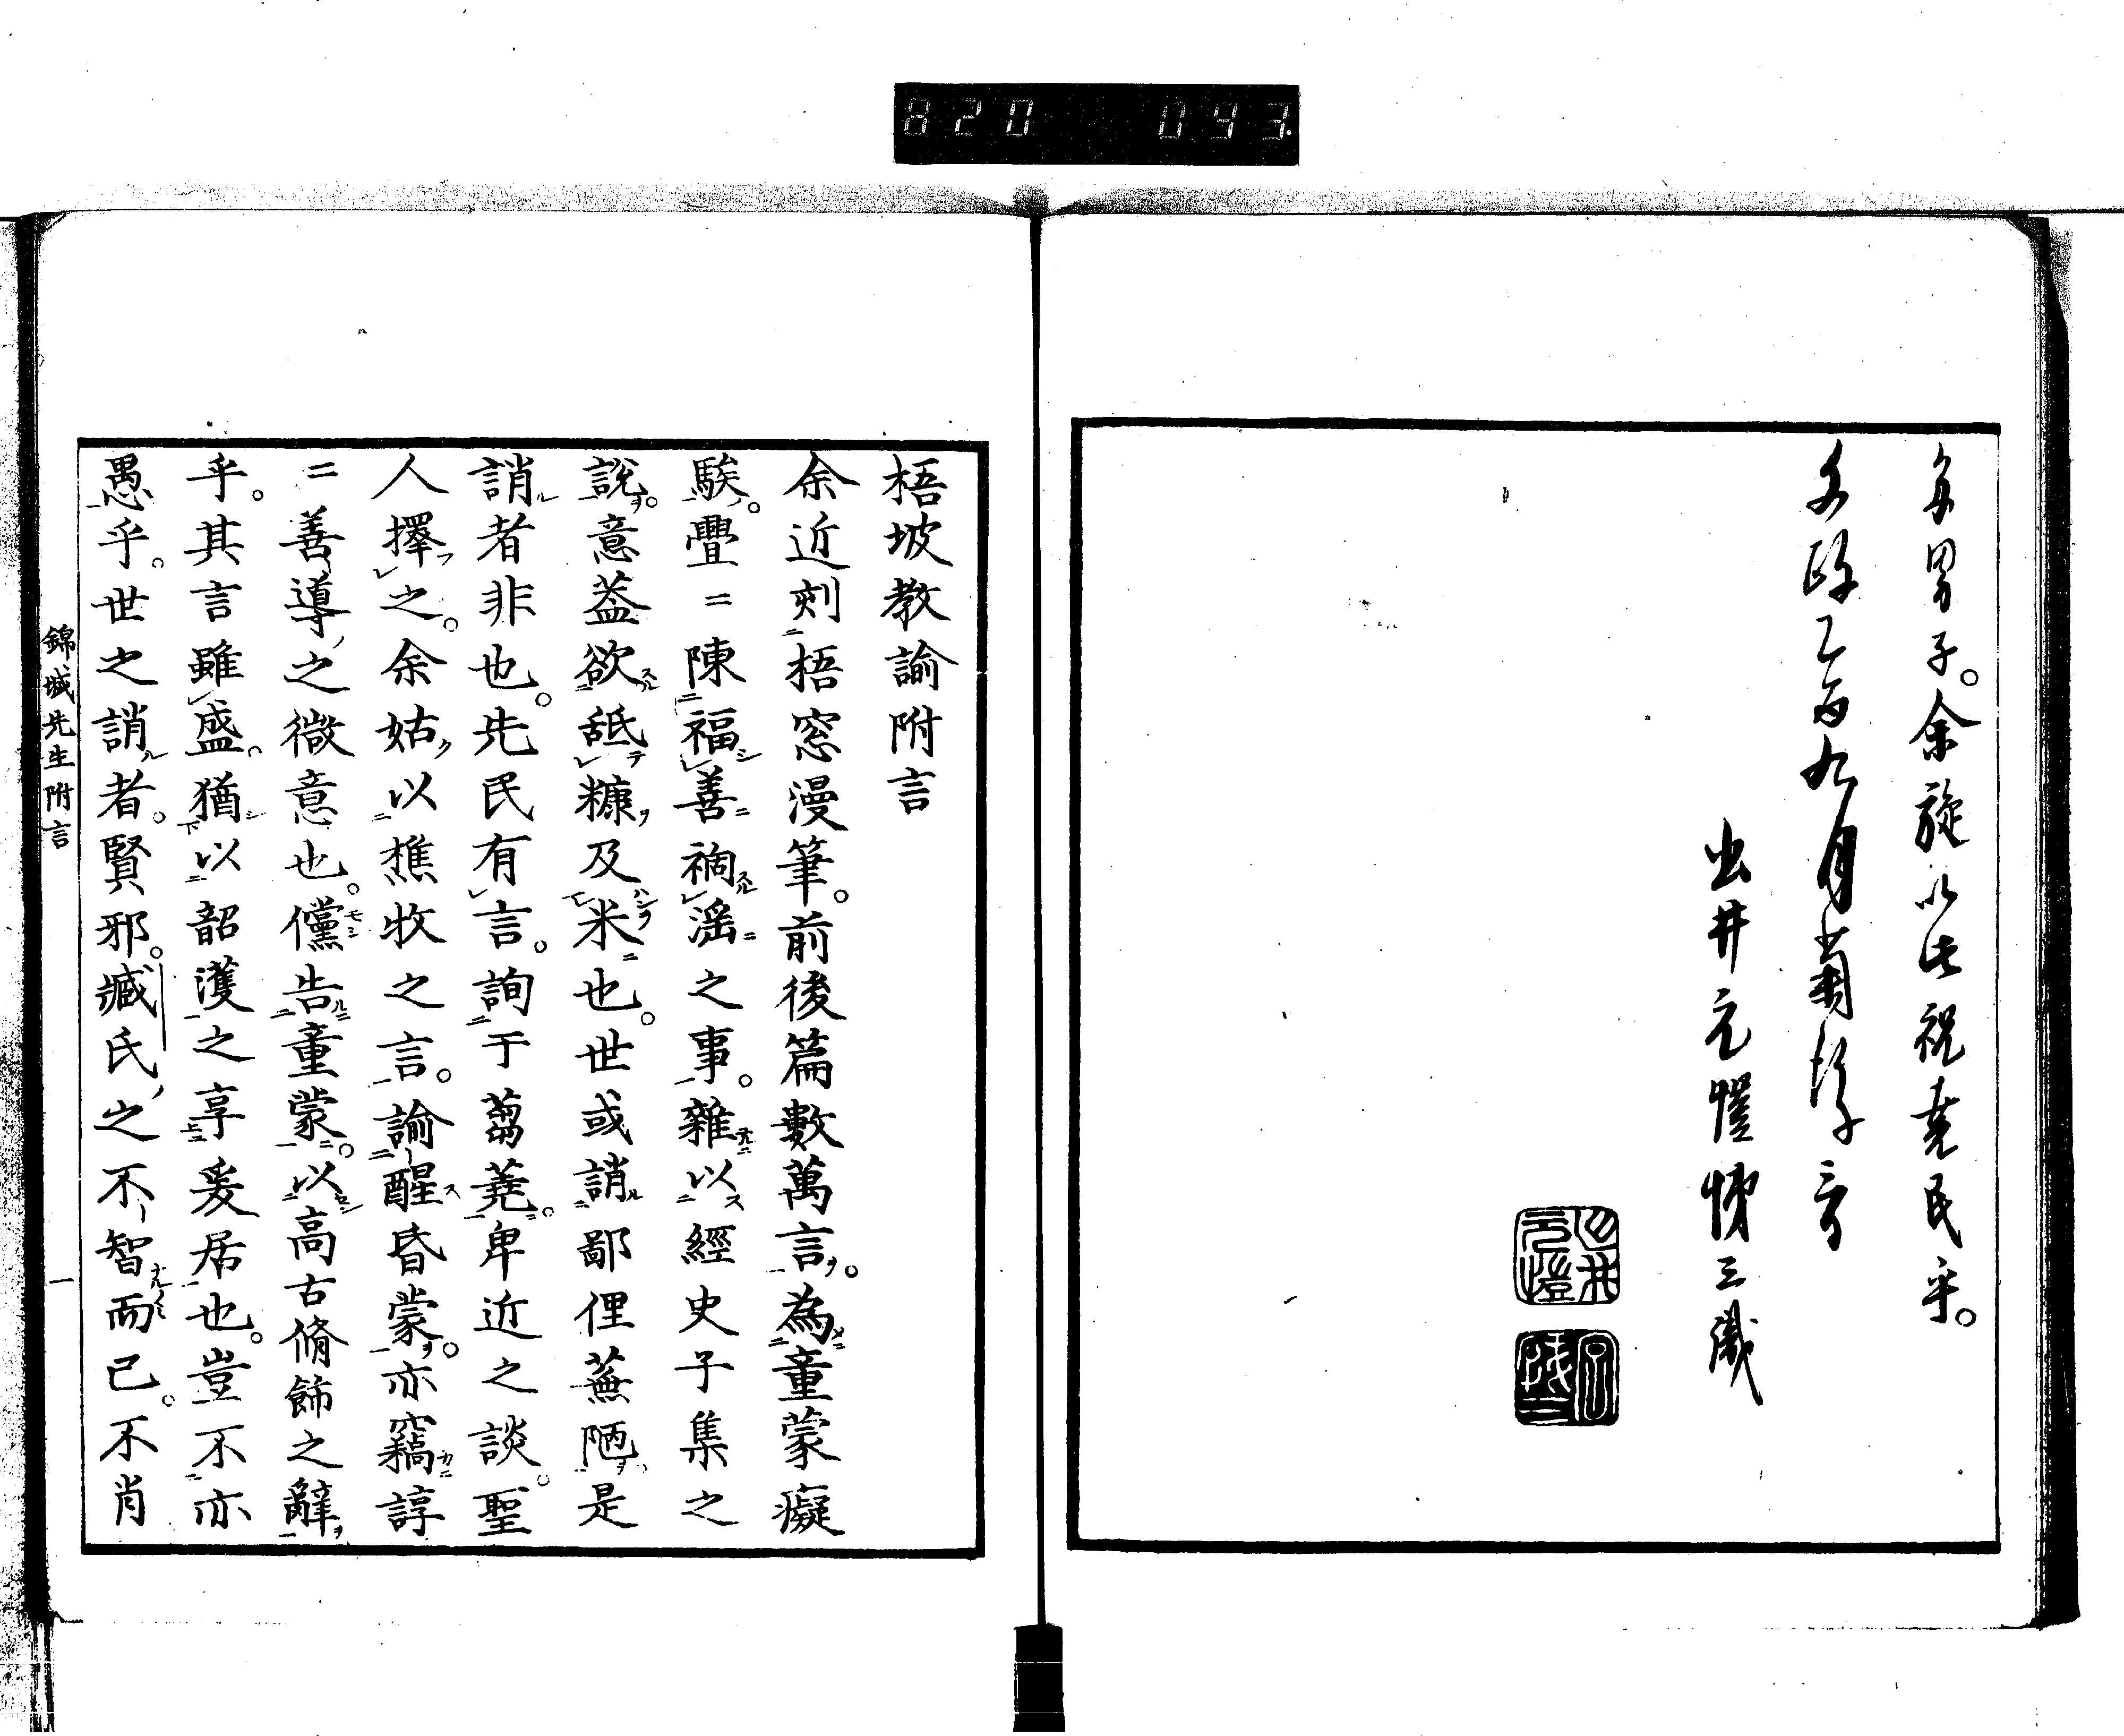 820 043
多男子。余旋以此祝堯民乎。
文政乙酉九月
出井元愷悌三識
梧坡教諭附言
余近刻梧窓漫筆。前後篇數萬言。為童蒙癡
騃。疊〻陳福善禍滛之事。雜以經史子集之
說。意葢欲舐糠及米也。世或誚鄙俚蕪陋。是
誚者非也。先民有言。詢于蒭蕘。卑近之談。聖
人擇之。余姑以樵牧之言。諭醒昏蒙。亦竊諄
〻善導之微意也。儻告童蒙。以高古脩飾之辭
乎。其言雖盛。猶以韶濩之享爰居也。豈不亦
愚乎。世之誚者。賢邪。臧氏之不智而已。不肖
錦城先生附言
一